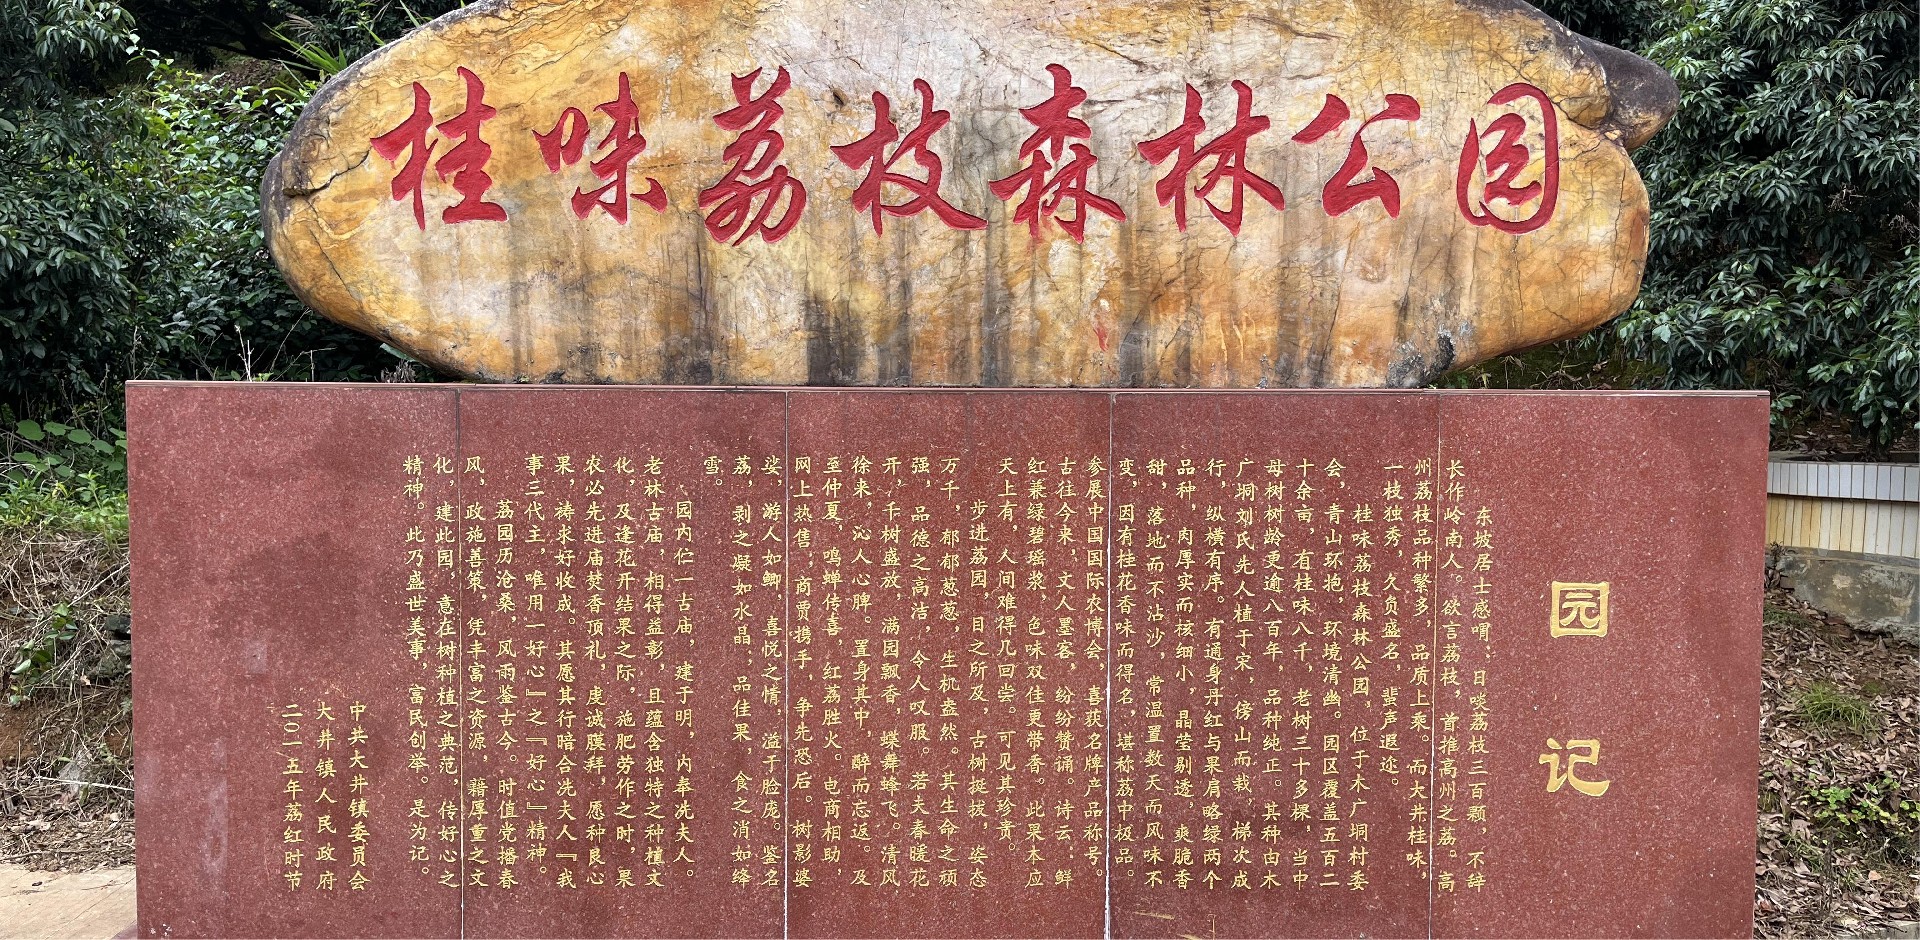 桂味荔枝森林公园
园记
东坡居士感喟：日啖荔枝三百颗，不辞
长作岭南人。欲言荔枝，首推高州之荔。高
州荔枝品种繁多，品质上乘。而大井桂味，
一枝独秀，久负盛名，蜚声遐迩。
桂味荔枝森林公园，位于木广垌村委
会，青山环抱，环境清幽。园区覆盖五百二
十余亩，有桂味八千，老树三十多棵，当中
母树树龄更逾八百年，品种纯正。其种由木
广垌刘氏先人植于宋，傍山而栽，梯次成
行，纵横有序。有通身丹红与果肩略绿两个
品种，肉厚实而核细小，晶莹剔透，爽脆香
甜，落地而不沾沙，常温置数天而风味不
变，因有桂花香味而得名，堪称荔中极品。
参展中国国际农博会，喜获名牌产品称号。
古往今来，文人墨客，纷纷赞诵。诗云：鲜
红兼绿碧瑶浆，色味双佳更带香。此果本应
天上有，人间难得几回尝。可见其珍贵。
步进荔园，目之所及，古树挺拔，姿态
万千，郁郁葱葱，生机盎然。其生命之顽
强，品德之高洁，令人叹服。若夫春暖花
开，千树盛放，满园飘香，蝶舞蜂飞。清风
徐来，沁人心脾。置身其中，醉而忘返。及
至仲夏，鸣蝉传喜，红荔胜火。电商相助，
网上热售，商贾携手，争先恐后。树影婆
娑，游人如鲫，喜悦之情，溢于脸庞。鉴名
荔，剥之凝如水晶，品佳果，食之消如绛
雪。
园内伫一古庙，建于明，内奉冼夫人。
老林古庙，相得益彰，且蕴含独特之种植文
化，及逢花开结果之际，施肥劳作之时，果
农必先进庙焚香顶礼，虔诚膜拜，愿种良心
果，祷求好收成。其愿其行暗合冼夫人『我
事三代主，唯用一好心』之『好心』精神。
荔园历沧桑，风雨鉴古今。时值党播春
风，政施善策，凭丰富之资源，藉厚重之文
化，建此园，意在树种植之典范，传好心之
精神。此乃盛世美事，富民创举。是为记。
中共大井镇委员会
大井镇人民政府
二〇一五年荔红时节